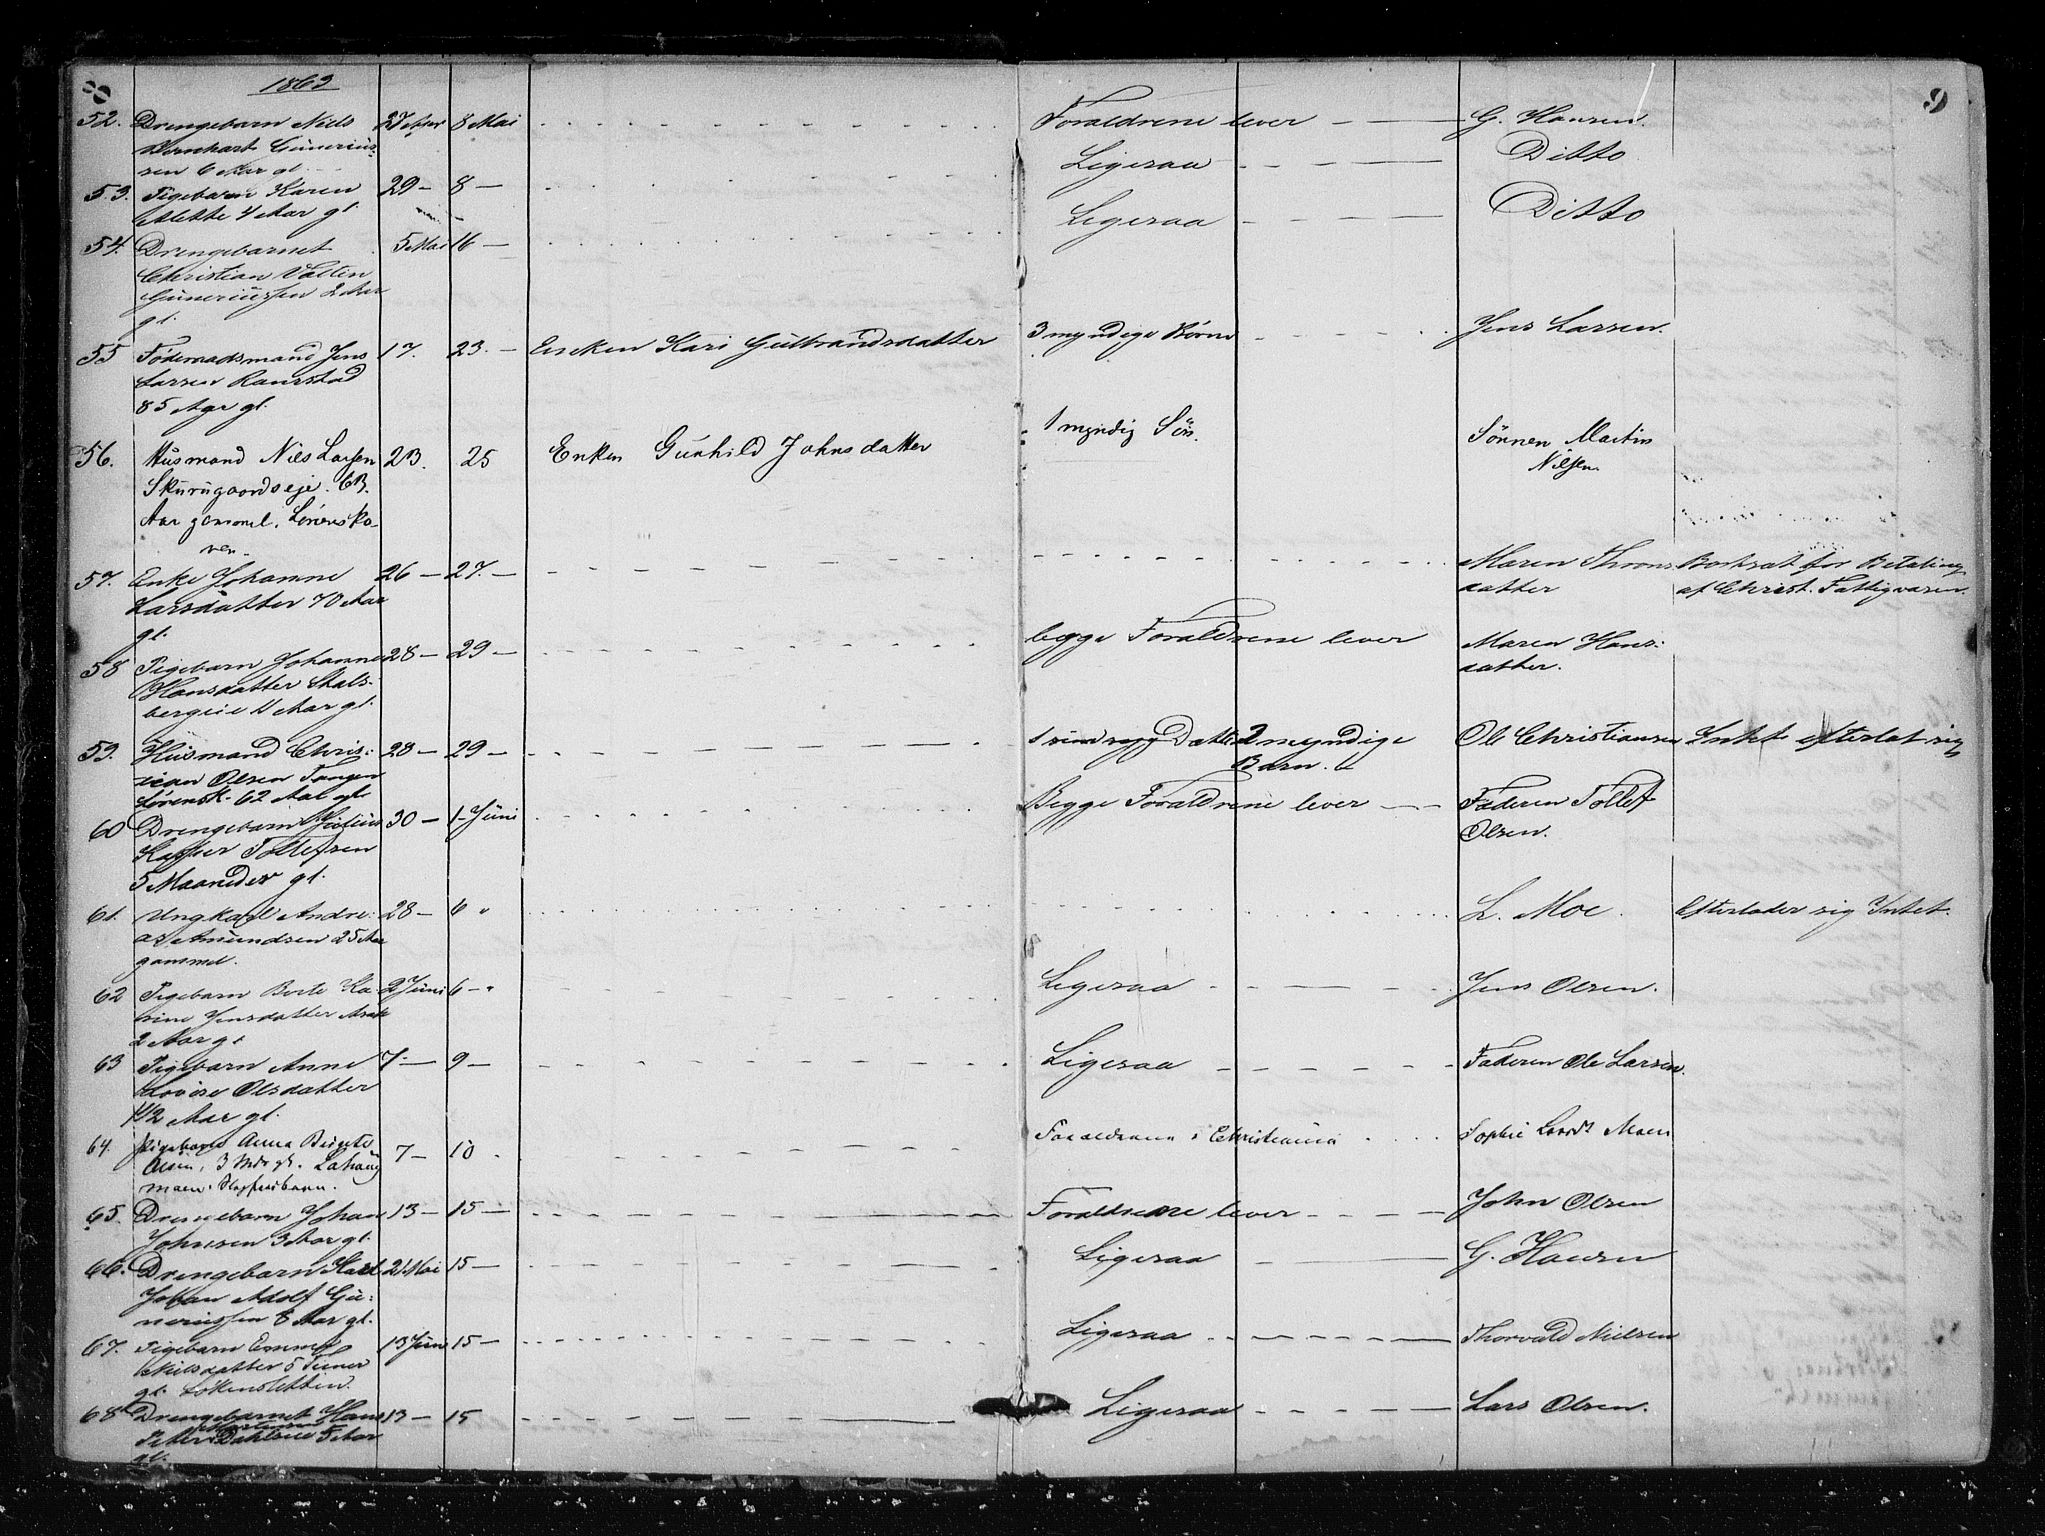 8
1862
9
52. Drengebarn Niels 27 Apr 8 Mai Foraldrene lever G. Hansen.
Bernhart Gunerius-
sen 6 Aar gl. Ligesaa Ditto
53. Pigebarn Karen 29 - 8 -
Alette 4 Aar gl. Ligesaa Ditto
54. Drengebarnet 5 Mai 16 -
Christian
Guneriussen 2 Aar
gl.
55 Foderaadsmand Jens 17. 23. - Encken Kari Gulbrandsdatter 3 myndige Børn Jens Larsen.
Larsen Raanstad
85 Aar gl.
56. Husmand Niels Larsen 23. 25 Enken Gunhild Johnsdatter 1 myndig Søn. Sønnen Martin
Skurugaardseje. 63. Nilsen
Aar gammel. Lørensko-
ven.
57. Enke Johanne 26 - 27. - Maren Throns Bortsat for Betaling
Larsdatter 70 Aar datter af Christ. Fattigvæsen.
gl.
58 Pigebarn Johanne 28 - 29 - begge Foraldrene lever Maren Hans:
Hansdatter Stals- datter.
bergeie 11 Aar gl.
59. Husmand Chris- 28 - 29 - 1 umyg Datter 2 myndige Ole Christiansen Intet efterlat sig
tian Olsen Tangen Børn.
Lørensk. 62 Aar gl.
60 Drengebarn Julius 30 - 1 - Juni Begge Foraldrene lever Faderen Tollef
Kasper Tollefsen Olsen.
5 Maaneder gl.
61. Ungkarl Andre: 28 - 6 " L. Moe. Efterlader sig Intet.
as Amundsen 25 Aar
gammel.
62 Pigebarn Berte Ka- 2 Juni 6 - " Ligesaa Jens Olsen.
rine Jensdatter
2 Aar gl
63 Pigebarn Anne 7 - 9 - Ligesaa Faderen Ole Larsen.
Lovise Olsdatter
1 1/2 Aar gl.
64. Pigebarn Anna Birgite 7 - 10 Foraldrene i Christiania Sophie Moen
Olsen, 3 Mdr gl.
moen.
65. Drengebarn Johan 13 - 15 - Foraldrene lever John Olsen
Johnsen 3 Aar gl.
66. Drengebarn Karl 21 Mai 15 - Ligesaa G. Hansen
Johan Adolf Gu:
neriussen 8 Aar gl.
67. Pigebarn Emma 13 Juni 15 - Ligesaa Thorvald Nielsen
Nielsdatter 5 Timer
gl. Løkensletten.
68 Drengebarnet Hans 13 - 15 Ligesaa Lars Olsen.
Peter 5 Aar
gl.